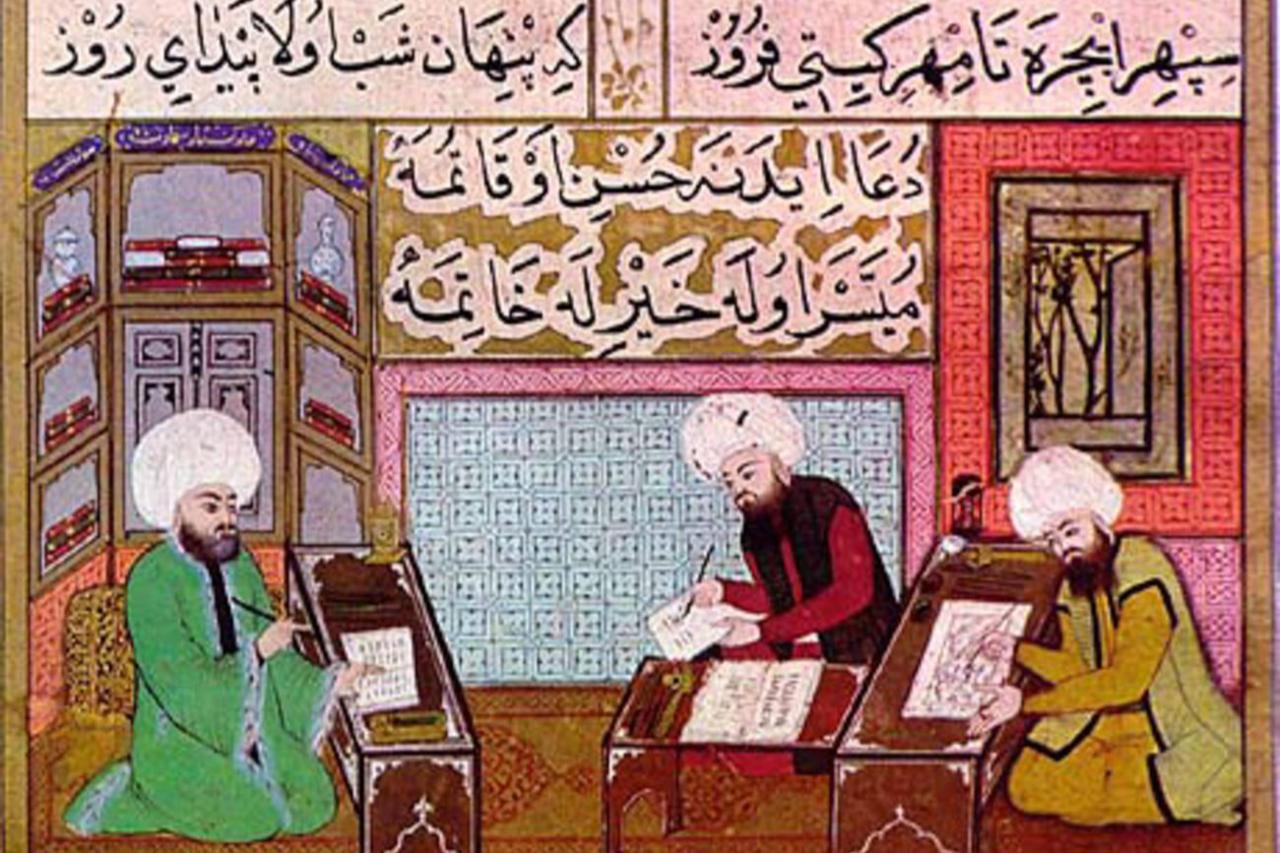 سپهر ایچره تا مهر کیتی فروز
که پنهان شب اولا پیدای روز
دعا ایدنه حسن اوقاتمه
میسر اوله خیر له خاتمه